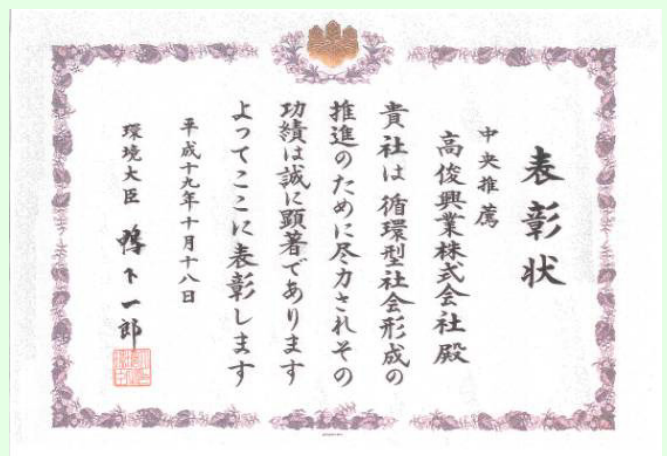 表彰状
中央推薦
高俊興業株式会社殿
貴社は循環型社会形成の
推進のために尽力されその
功績は誠に顕著であります
よってここに表彰します
平成十九年十月十八日
環境大臣 鴨下一郎